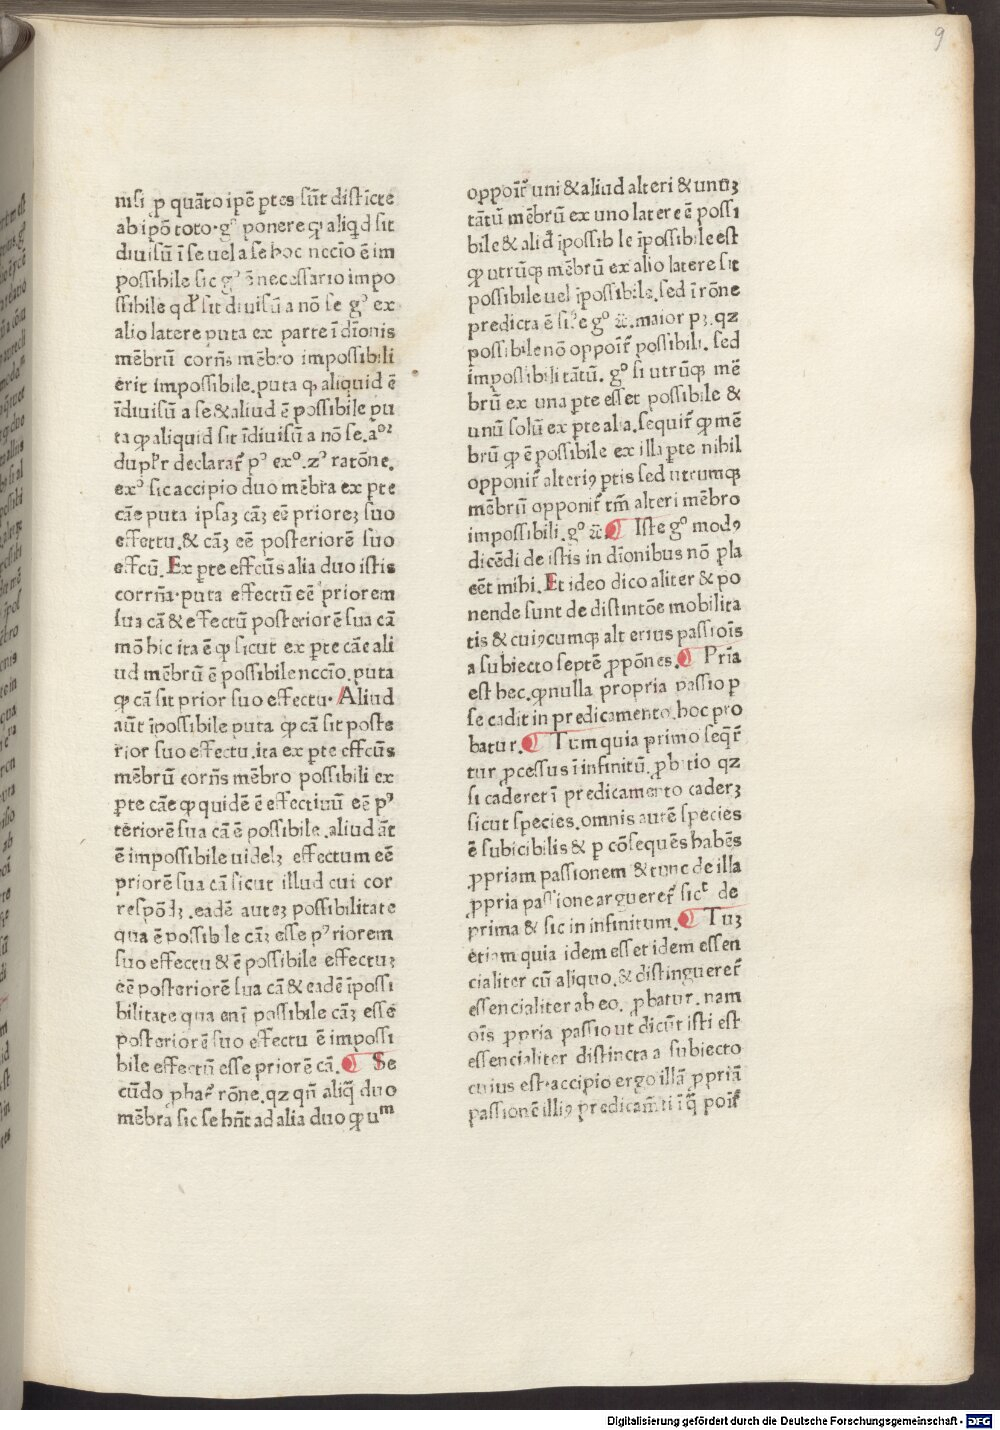 9
nisi ꝓ quāto ip̄e ꝑtes sūt distīcte
ab ip̄o toto. gº ponere ꝙ aliqd̄ sit
diuisū ī se uel a se hoc nccīo ē im
possibile sic gº ē necessario impo
ssibile qđ sit diuisū a nō se gº ex
alio latere puta ex parte īdīonis
mēbrū corrn̄s mēbro impossibili
erit impossibile. puta ꝙ aliquid ē
īdiuisū a se & aliud ē possibile pu
ta ꝙ aliquid sit īdiuisū a nō se. āºꝛ
dupłr declaratᷣ pº exº. zº ratōne.
exº sic accipio duo mēbra ex ꝑte
cāe puta ipsaꝫ cāꝫ eē prioreꝫ suo
effectu. & cāꝫ eē posteriorē suo
effcū. Ex ꝑte effcūs alia duo istis
corrn̄a. puta effectū eē priorem
sua cā & effectū posteriorē sua cā
mō hic ita ē ꝙ sicut ex ꝑte cāe ali
ud mēbrū ē possibile nccīo. puta
ꝙ cā sit prior suo effectu. Aliud
aūt īpossibile puta ꝙ cā sit poste
rior suo effectu. ita ex ꝑte effcūs
mēbrū corrn̄s mēbro possibili ex
ꝑte cāe ꝙ quidē ē effectiuū eē pꝰ
teriorē sua cā ē possibile. aliud āt
ē impossibile uidelꝫ effectum eē
priorē sua cā sicut illud cui cor
respōdꝫ. eadē auteꝫ possibilitate
qua ē possib le cāꝫ esse pꝰriorem
suo effectu & ē possibile effectuꝫ
eē posteriorē sua cā & eadē īpossi
bilitate qua enī possibile cāꝫ esse
posteriorē suo effectu ē impossi
bile effectū esse priorē cā. ¶ Se
cūdo ꝓbatᷣ rōne. qꝫ qn̄ aliq̄ duo
mēbra sic se hn̄t ad alia duo ꝙ uᵐ
oppoītᷣ uni & aliud alteri & unuꝫ
tātū mēbrū ex uno latere ē possi
bile & alid̄ īpossib le īpossibile est
ꝙ utrūqꝫ mēbrū ex alio latere sit
possibile uel īpossibile. sed ī rōne
predicta ē sic̄ e gº &̄. maior pꝫ. qꝫ
possibile nō oppoītᷣ possibili. sed
īmpossibili tātū. gº si utrūqꝫ mē
brū ex una ꝑte esset possibile &
unū solū ex ꝑte alia. sequitᷣ ꝙ mē
brū ꝙ ē possibile ex illa ꝑte nihil
opponitᷣ alteriꝰ ꝑtis sed utrumqꝫ
mēbrū opponitᷣ tm̄ alteri mēbro
impossibili. gº &̄. ¶ Iste gº modꝰ
dicēdi de istis in dīonibus nō pla
cēt mihi. Et ideo dico aliter & po
nende sunt de distintōe mobilita
tis & cuiꝰcumqꝫ alt erius passiōis
a subiecto septē ꝓpōnes. ¶ Prīa
est hec. ꝙ nulla propria passio ꝑ
se cadit in predicamento. hoc pro
batur. ¶ Tum quia primo seqᷣtᷣ
tur ꝓcessus ī infinitū. ꝓb tio qꝫ
si caderet ī predicamento caderꝫ
sicut species. omnis autē species
ē subicibilis & ꝑ cōsequēs habēs
ꝓpriam passionem & tunc de illa
ꝓpria passione argueretᷣ sicᵗ de
prima & sic in infinitum. ¶ Tuꝫ
etiam quia idem esset idem essen
cialiter cū aliquo. & distingueretᷣ
essencialiter ab eo. ꝓbatur. nam
oīs ꝓpria passio ut dicūt isti est
essencialiter distincta a subiecto
cuius est. accipio ergo illā ꝓpriā
passionē illiꝰ predicam̄ti ī q̄ poītᷣ
Digitalisierung gefördert durch die Deutsche Forschungsgemeinschaft - DFG